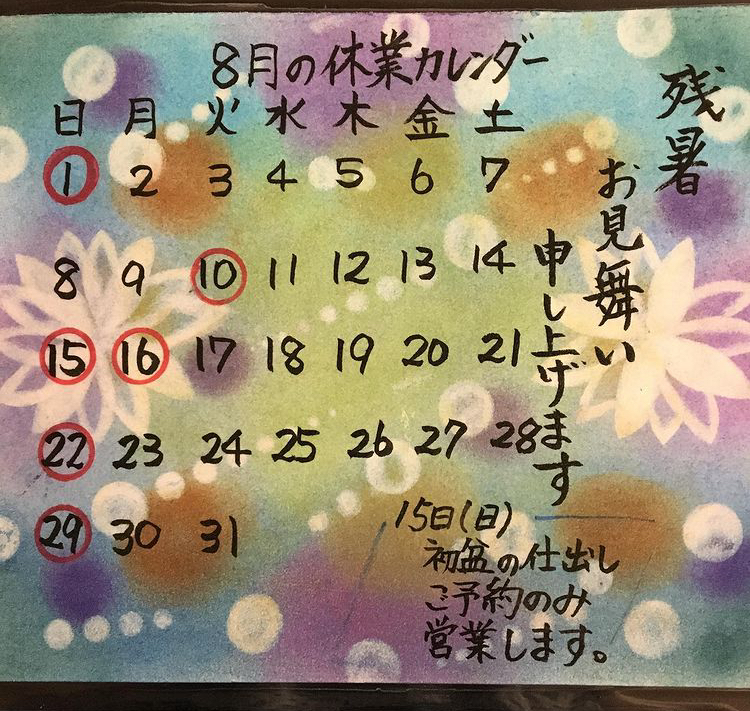 8月の休業カレンダー
日 月 火 水 木 金 土
1 2 3 4 5 6 7
8 9 10 11 12 13 14
15 16 17 18 19 20 21
22 23 24 25 26 27 28
29 30 31
残暑
お見舞い
申し上げます
15日(日)
初盆の仕出し
ご予約のみ
営業します。